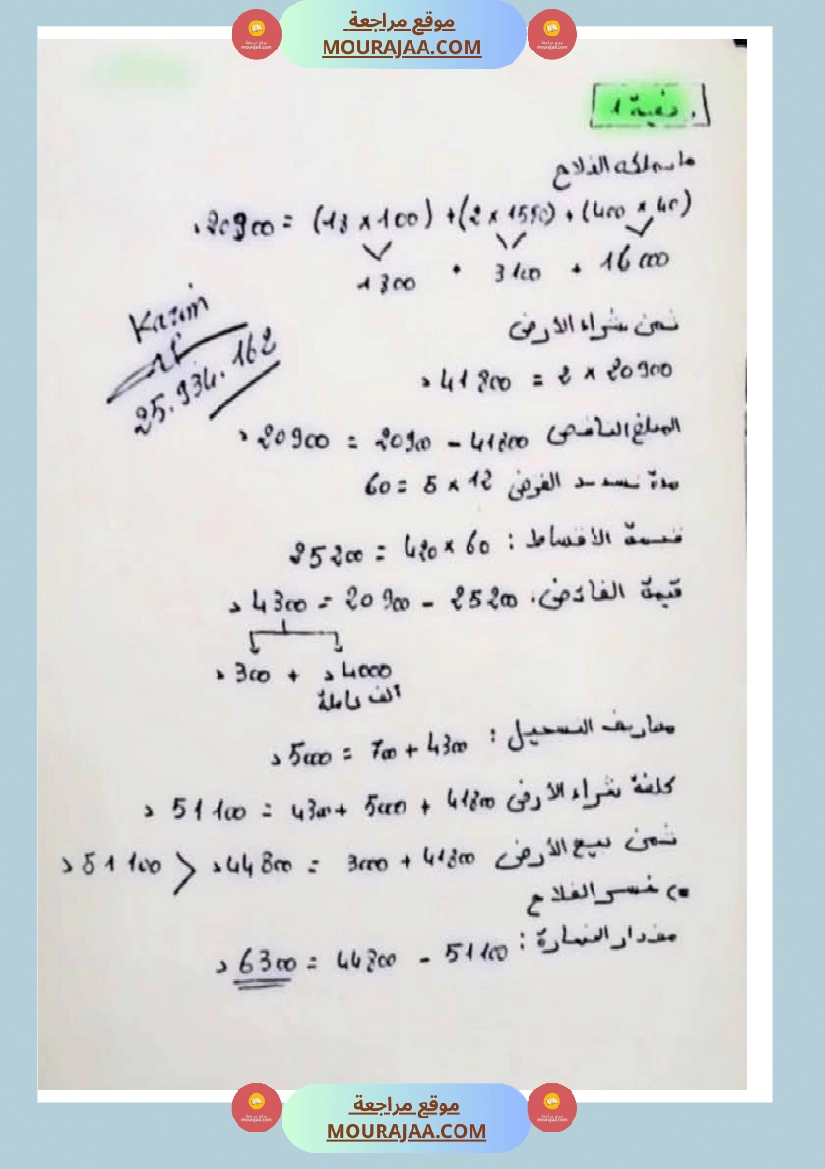 موقع مراجعة
MOURAJAA.COM
وضعية 1
ما يملكه الفلاح
(40 × 400) + (1550 × 2) + (100 × 13) = 20900د
16000 + 3100 + 1300
ثمن شراء الأرض
20900 × 2 = 41800د
Karim
25.934.162
المبلغ الناقص 41800 - 20900 = 20900د
مدة تسديد القرض 12 × 5 = 60
قيمة الأقساط : 60 × 420 = 25200
قيمة الفائض: 25200 - 20900 = 4300د
4000د + 300د
ألف كاملة
مصاريف التسجيل : 4300 + 700 = 5000د
كلفة شراء الأرض 41800 + 5000 + 4300 = 51100د
ثمن بيع الأرض 41800 + 3000 = 44800د < 51100د
خسر الفلاح
مقدار الخسارة : 51100 - 44800 = 6300د
موقع مراجعة
MOURAJAA.COM